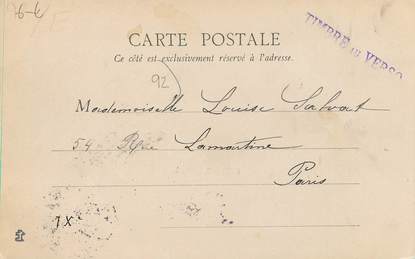 76-6
TIMBRE AU VERSO
CARTE POSTALE
Ce côté est exclusivement réservé à l'adresse.
92
Mademoiselle Louise Salvat
54 Rue Lamartine
Paris
IX